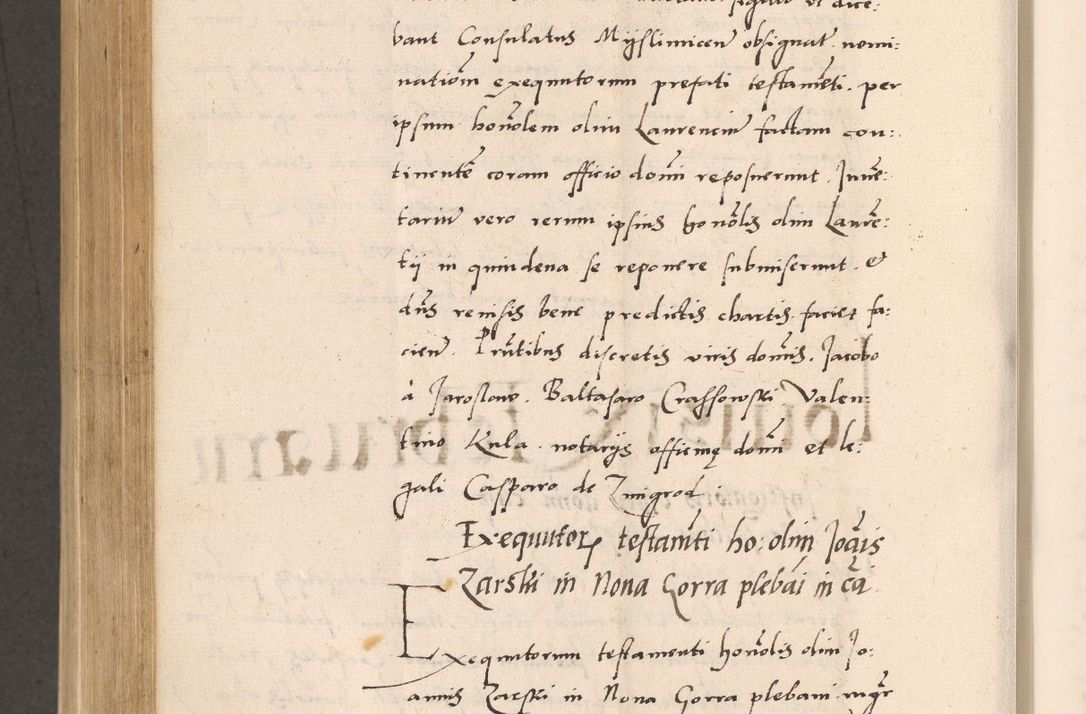 bant Consulatus Myslimicen̄ obsignat. nomi:
nationem exequutorum prefati testamēti. per
ipsum honōlem olim Laurenciū factam con:
tinentē coram officio domī reposuerunt. Invē:
tariū vero rerum ipsius honōlis olim Laurē:
tij in quindena se reponere submiserunt. Et
dn̄s revisis bene predictis chartis. faciet fa:
cien̄. Pn̄tibus discretis viris domīs. Jacobo
à Jaroslaw. Baltasaro Crassowski Valen:
tino Kula. notarijs officinę domī et le:
gali Casparo de Zmigrod.
Exequutor testamti ho: olim Joānis
Zarski in Nova Gorra plebāi in cā
Exequutorum testamenti honōlis olim Jo:
annis Zarski in Nova Gorra plebani. mgr̄